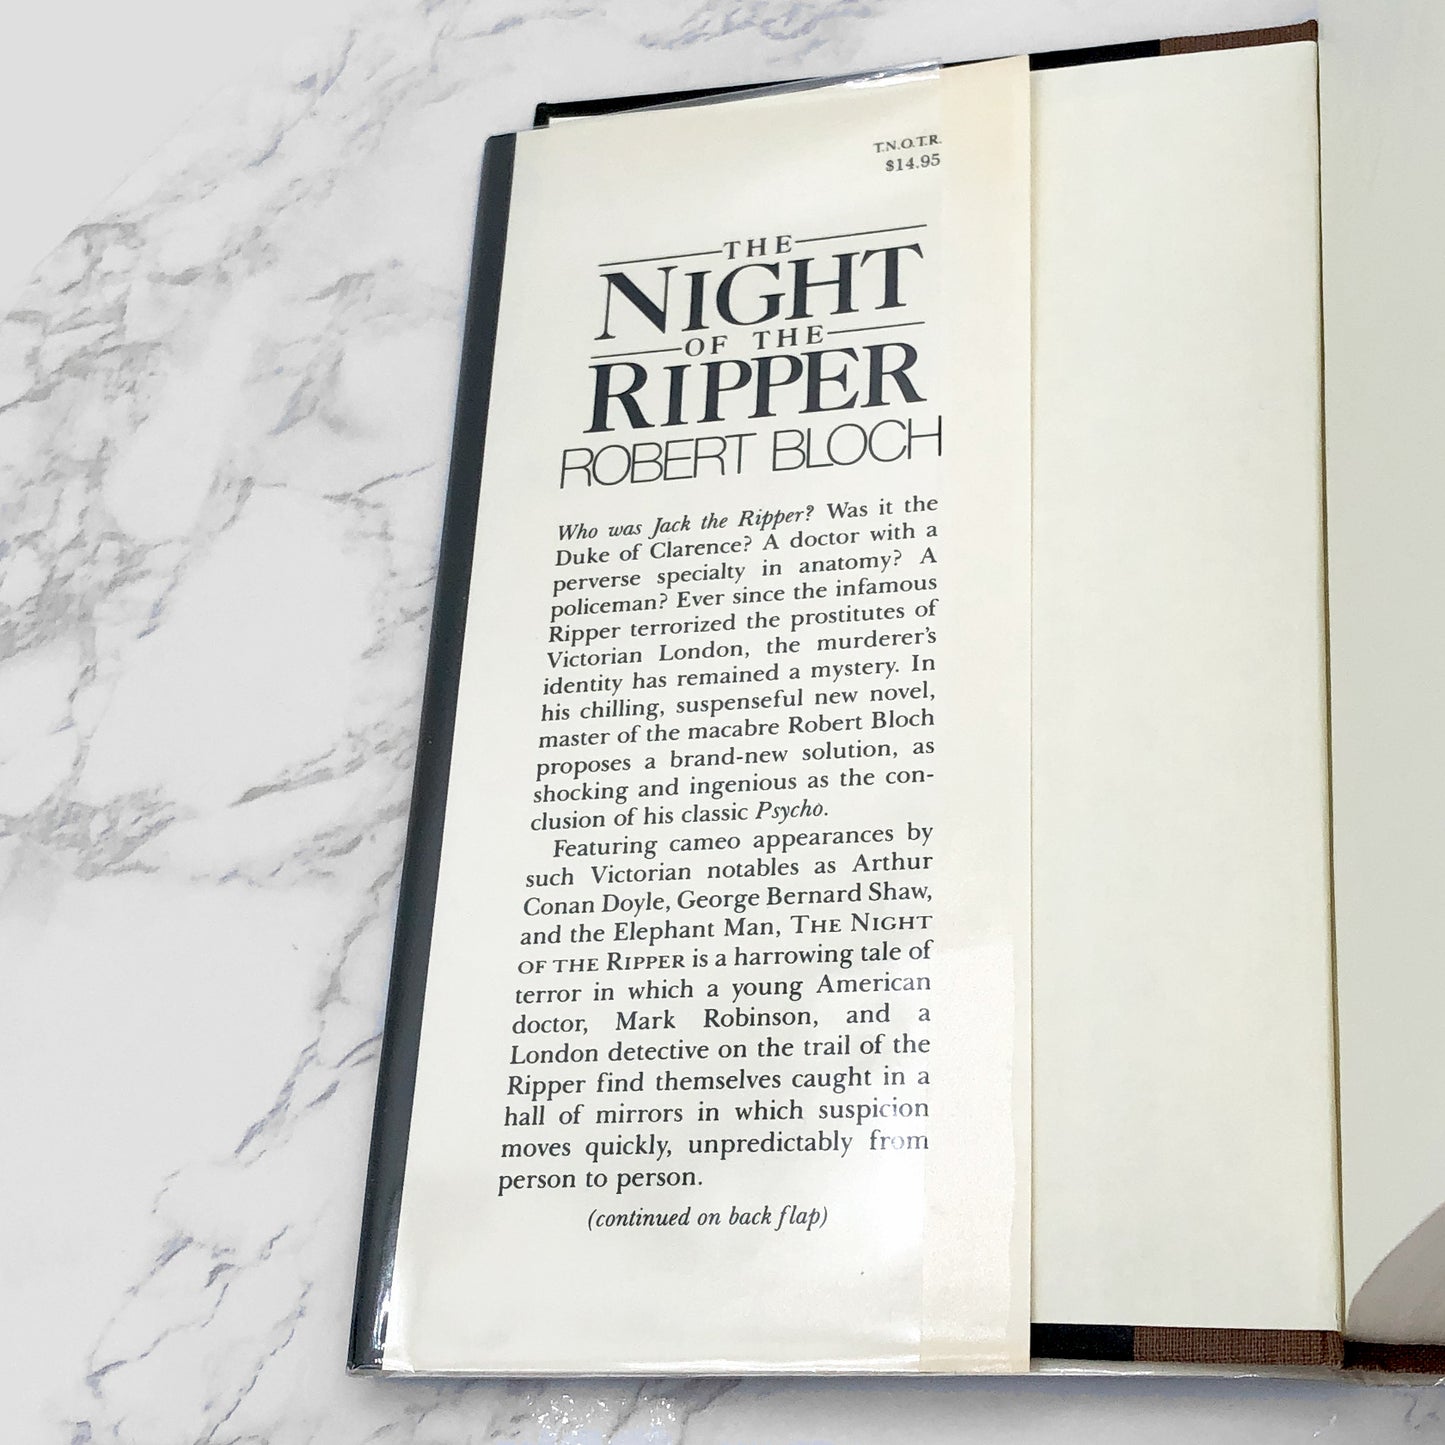 T.N.O.T.R.
$14.95
THE
NIGHT
OF THE
RIPPER
ROBERT BLOCH
Who was Jack the Ripper? Was it the
Duke of Clarence? A doctor with a
perverse specialty in anatomy? A
policeman? Ever since the infamous
Ripper terrorized the prostitutes of
Victorian London, the murderer's
identity has remained a mystery. In
his chilling, suspenseful new novel,
master of the macabre Robert Bloch
proposes a brand-new solution, as
shocking and ingenious as the con-
clusion of his classic Psycho.
Featuring cameo appearances by
such Victorian notables as Arthur
Conan Doyle, George Bernard Shaw,
and the Elephant Man, THE NIGHT
OF THE RIPPER is a harrowing tale of
terror in which a young American
doctor, Mark Robinson, and a
London detective on the trail of the
Ripper find themselves caught in a
hall of mirrors in which suspicion
moves quickly, unpredictably from
person to person.
(continued on back flap)